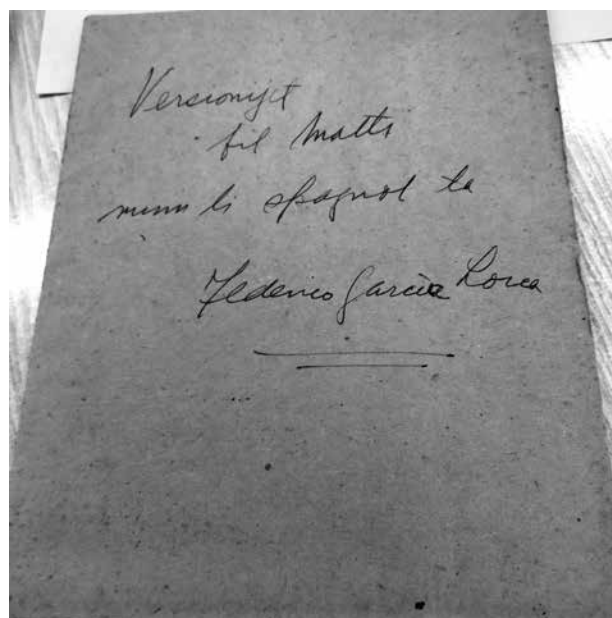 Versionijet
bil Malti
minn li Spagnol ta
Federico Garcìa Lorca